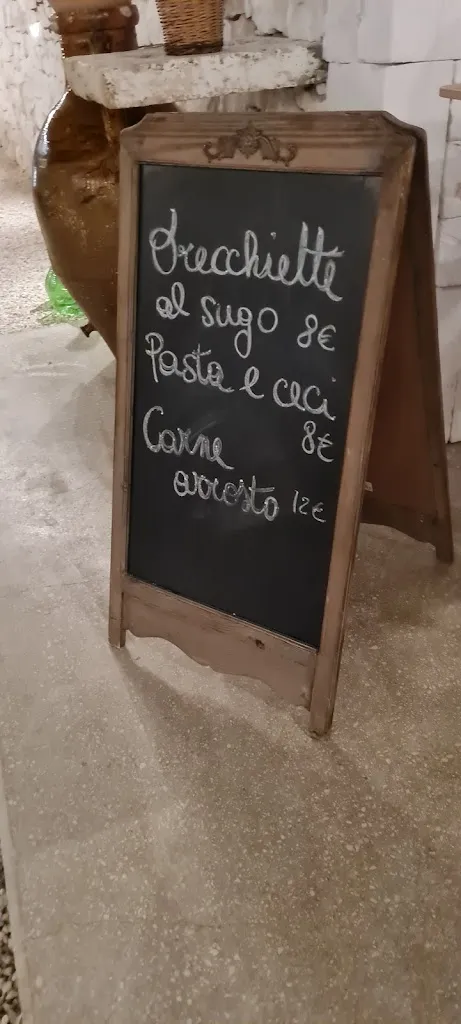 Orecchiette
al sugo 8€
Pasta e ceci
8€
Carne
arrosto 12€